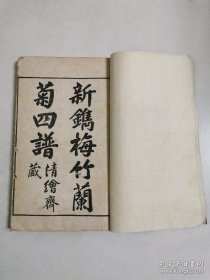 新鐫梅竹蘭
菊四譜
清繪齋
藏